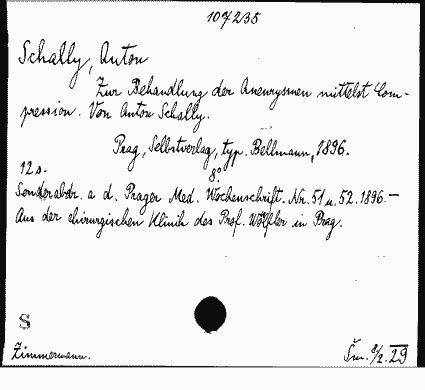 107235
Schally, Anton
Zur Behandlung der Aneurysmen mittelst Com-
pression. Von Anton Schally.
Prag, Selbstverlag, typ. Bellmann, 1896.
12 s. 8°.
Sonderabdr. a d. Prager Med. Wochenschrift. Nr. 51 u. 52. 1896.—
Aus der chirurgischen Klinik des Prof. Wölfler in Prag.
S
Zimmermann. Šm. 8/2. 29